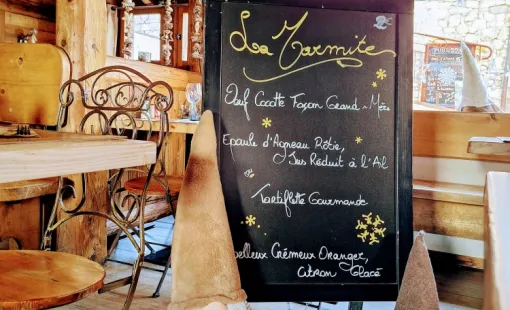 La Marmite
Oeuf Cocotte Façon Grand-Mère
Epaule d'Agneau Rôtie,
Jus Réduit à l'Ail
Tartiflette Gourmande
elleux Crémeux Oranger,
Citron Glacé